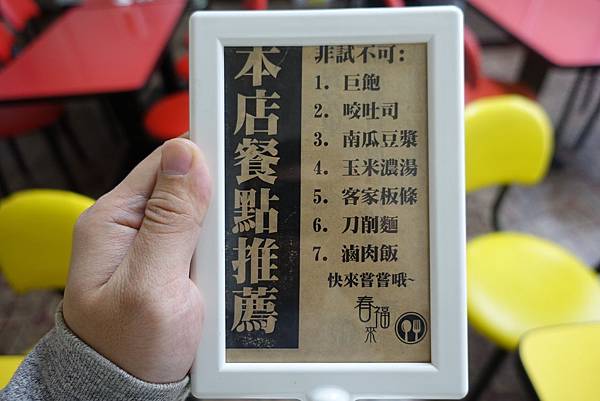 本店餐點推薦
非試不可:
1. 巨飽
2. 咬吐司
3. 南瓜豆漿
4. 玉米濃湯
5. 客家板條
6. 刀削麵
7. 滷肉飯
快來嘗嘗哦~
春福來